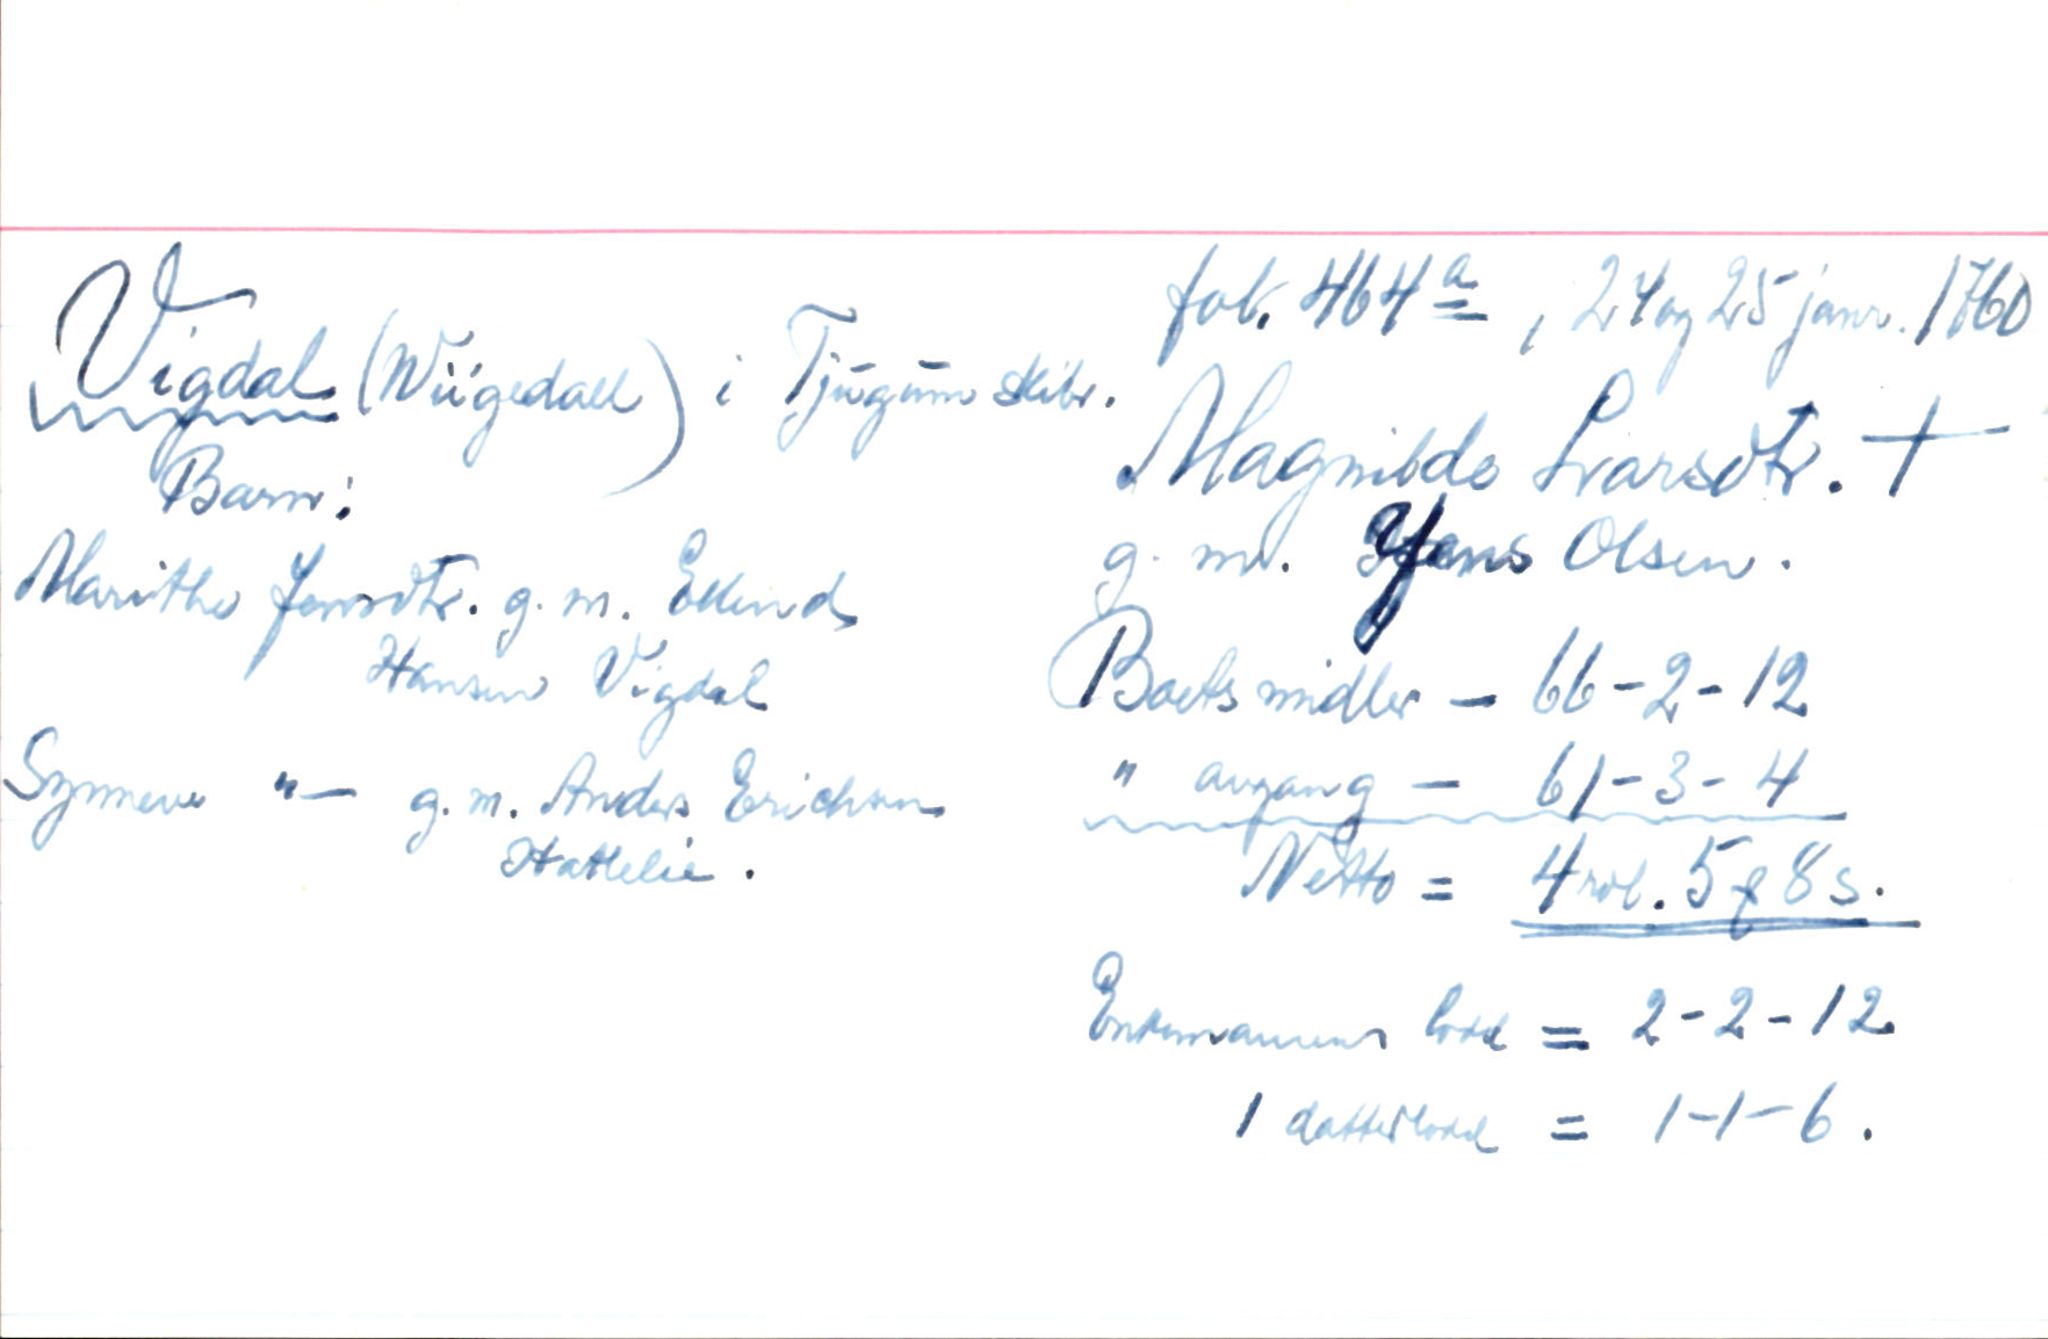 fol. 464a, 24 og 25 janr. 1760
Vigdal (Wiigedall) i Tjugum skibr.
Magnilde Ivarsdtr. +
Barn:
g. m. Jens Olsen.
Marithe Jensdtr. g. m. Ellend
Hansen Vigdal
Boets midler – 66-2-12
Synneve "— g. m. Anders Erichsen
Hattelie.
" avgang – 61-3-4
Netto = 4 rdl. 5 ȹ 8 s.
Enkemannens lodd = 2-2-12
1 datterlodd = 1-1-6.